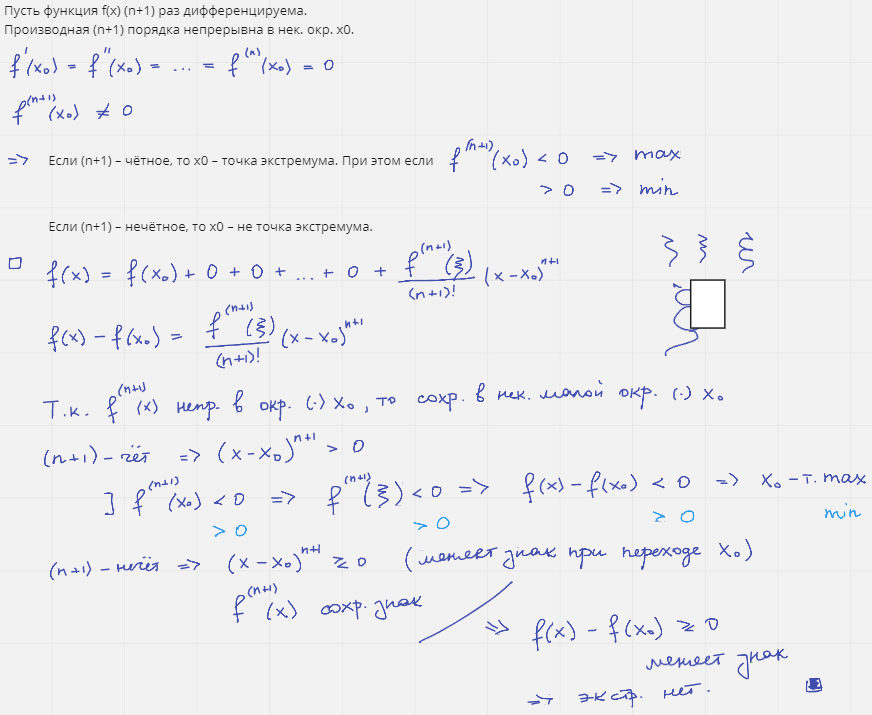 Пусть функция f(x) (n+1) раз дифференцируема.
Производная (n+1) порядка непрерывна в нек. окр. x0.
f'(x₀) = f''(x₀) = ... = f⁽ⁿ⁾(x₀) = 0
f⁽ⁿ⁺¹⁾(x₀) ≠ 0
=> Если (n+1) – чётное, то x0 – точка экстремума. При этом если f⁽ⁿ⁺¹⁾(x₀) < 0 => max
> 0 => min
Если (n+1) – нечётное, то x0 – не точка экстремума.
□ f(x) = f(x₀) + 0 + 0 + ... + 0 + f⁽ⁿ⁺¹⁾(ξ)/(n+1)! (x-x₀)ⁿ⁺¹
f(x) - f(x₀) = f⁽ⁿ⁺¹⁾(ξ)/(n+1)! (x-x₀)ⁿ⁺¹
Т.к. f⁽ⁿ⁺¹⁾(x) непр. в окр. (·) x₀, то сохр. в нек. малой окр. (·) x₀
(n+1) – чёт => (x-x₀)ⁿ⁺¹ > 0
] f⁽ⁿ⁺¹⁾(x₀) < 0 => f⁽ⁿ⁺¹⁾(ξ) < 0 => f(x) - f(x₀) < 0 => x₀ - т. max
> 0 > 0 ≥ 0 min
(n+1) – нечёт => (x-x₀)ⁿ⁺¹ ≷ 0 (меняет знак при переходе x₀)
f⁽ⁿ⁺¹⁾(x) сохр. знак
=> f(x) - f(x₀) ≷ 0
меняет знак
=> экстр. нет.